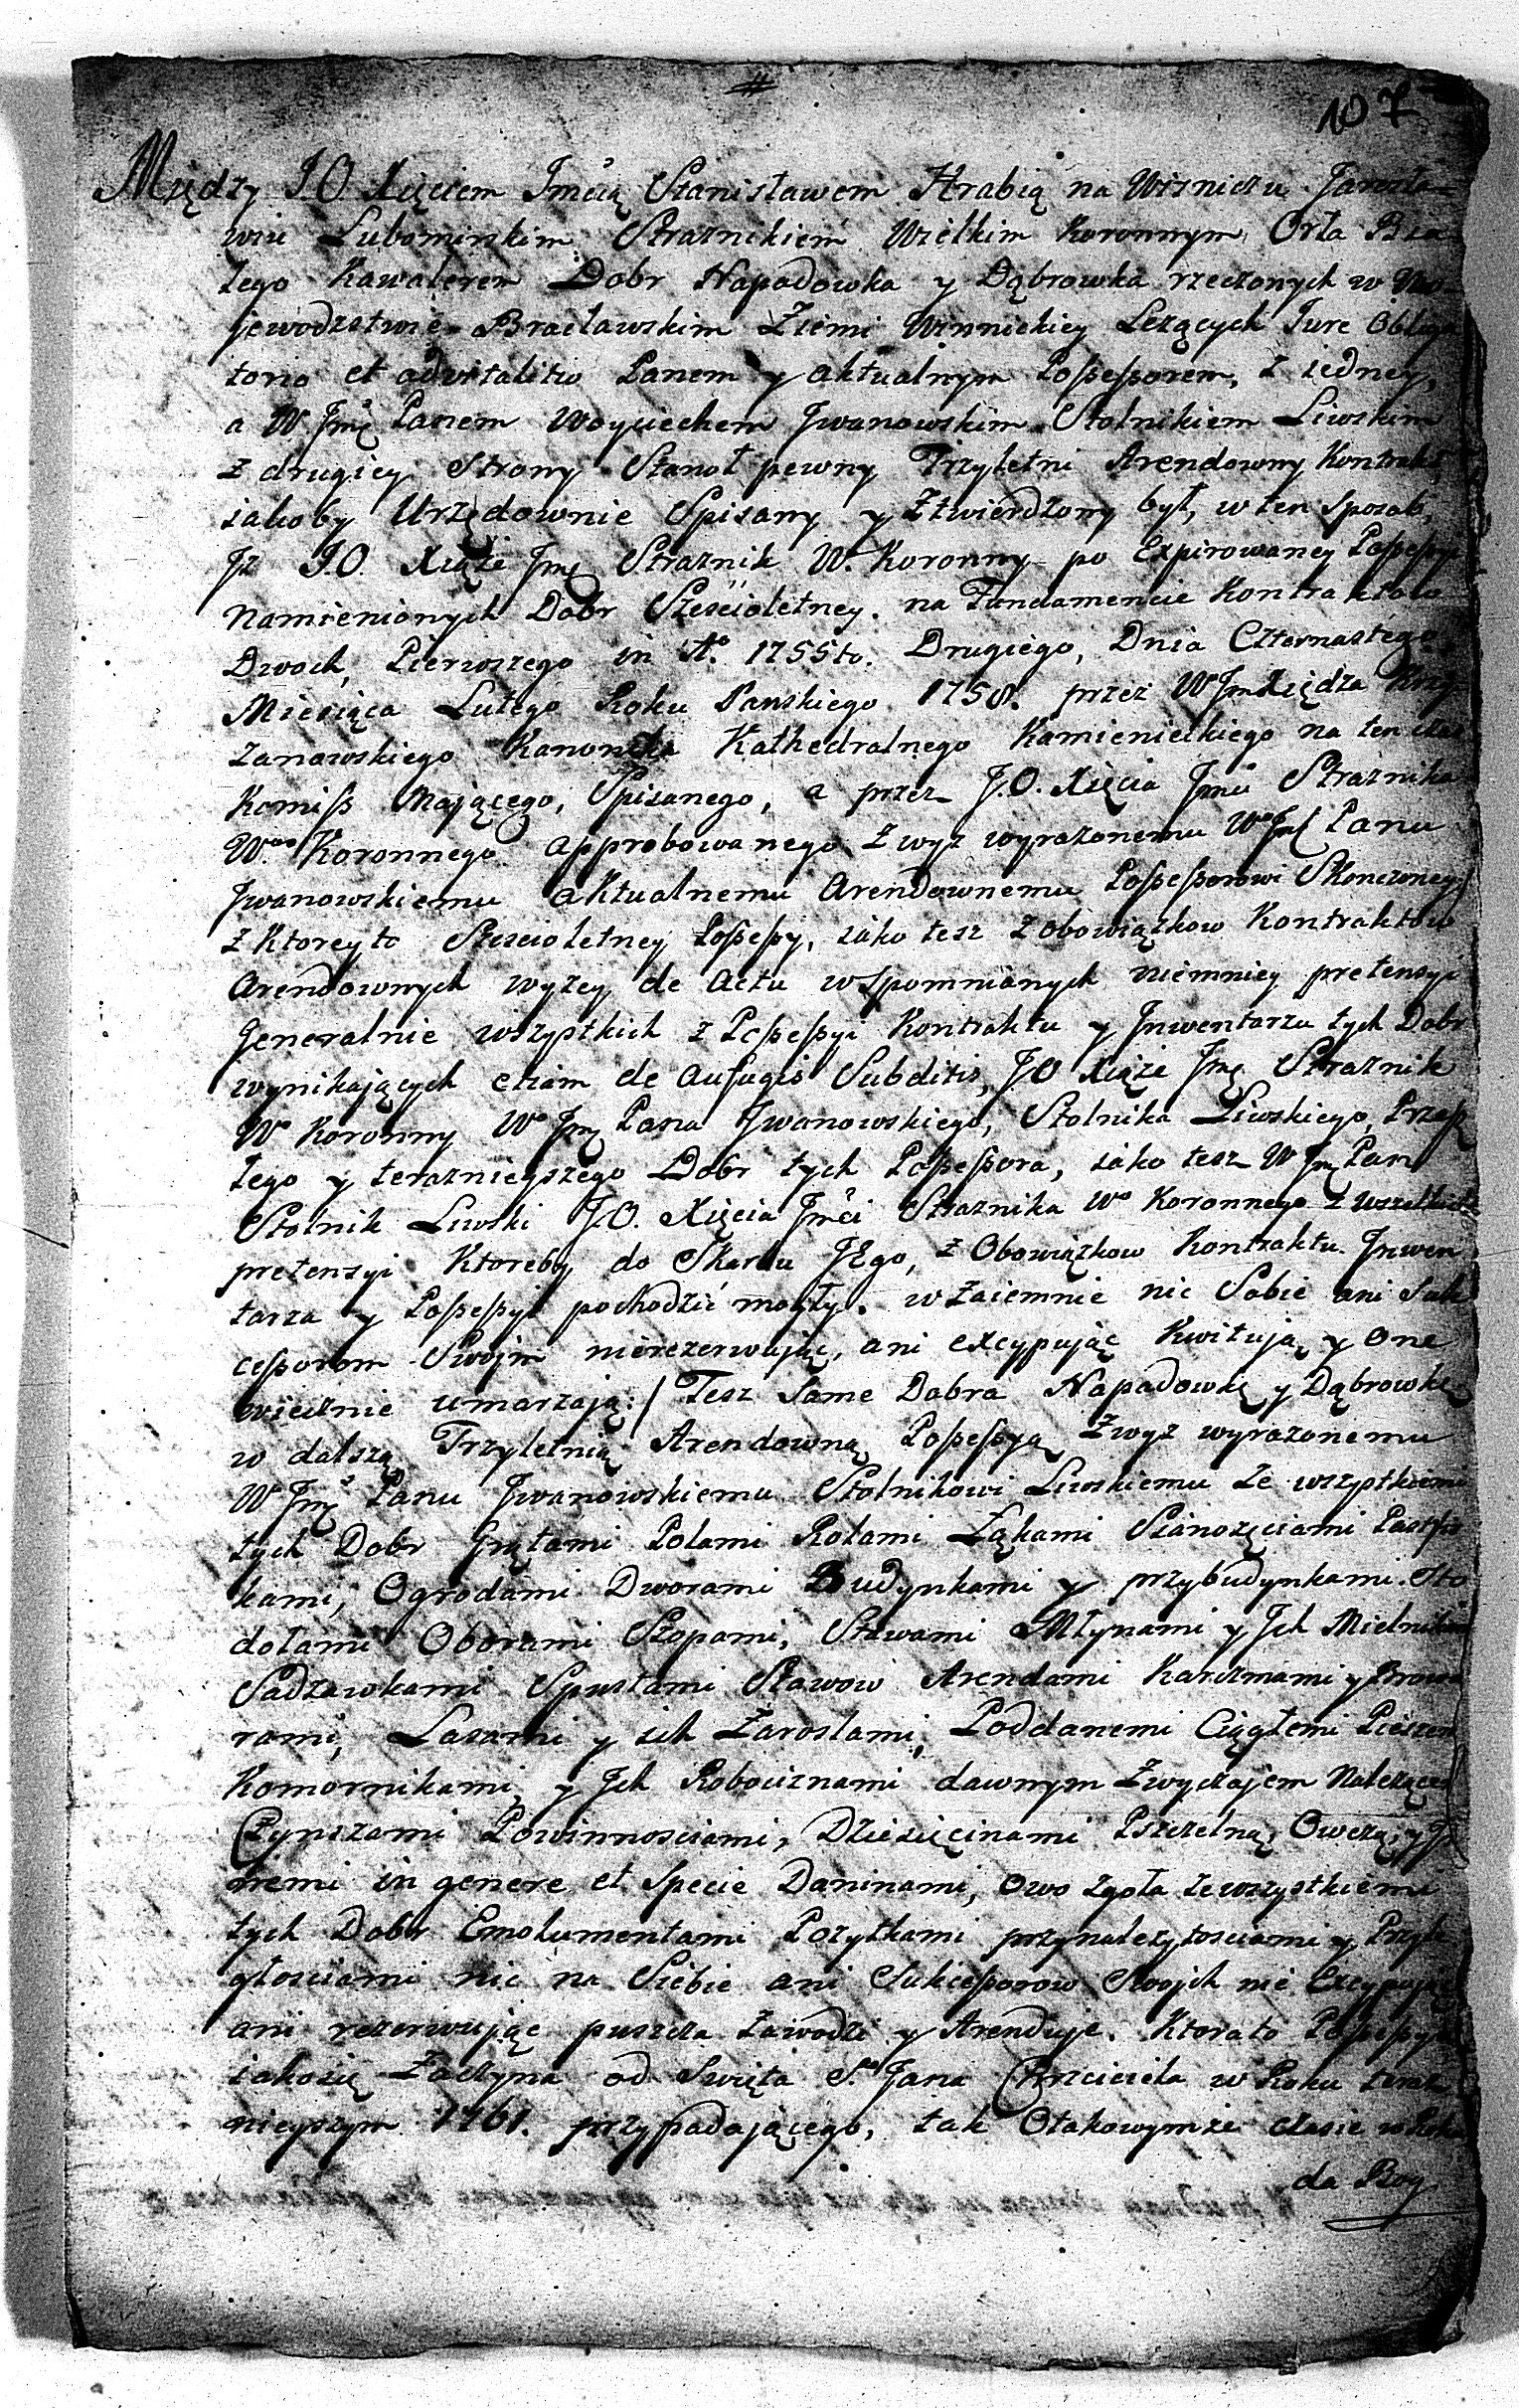 107
Między J.O. Xięciem Jmcią Stanisławem Hrabią na Wisniczu Jarosła-
wiu Lubomirskim Straznikiem Wielkim Koronnym Orła Bia-
łego Kawalerem Dobr Napadowka y Dąbrowka rzeczonych w Wo-
jewodztwie Bracławskim Ziemi Winnickiey Lezących Jure Obliga
torio et advitalitio Panem y aktualnym Possessorem, z iedney,
a W Jmę Panem Woyciechem Jwanowskim Stolnikiem Liwskim
z drugiey Strony Stanoł pewny Trzyletni Arendowny Kontrakt,
iakoby Urzędownie Spisany y Ztwierdzony był, w ten sposob,
Jz J.O. Xiąże Jmę Straznik W. Koronny po Expirowaney Possessyi
Namienionych Dobr Sześcioletney. na Fundamencie Kontraktow
Dwoch, Pierwszego in Aº. 1755to. Drugiego, Dnia Czternastego
Miesiąca Lutego Roku Panskiego 1758. przez W Jm Xiędza
zanowskiego Kanonika Kathedralnego Kamienieckiego na ten czas
Komiss Mającego, Spisanego, a przez J.O. Xięcia Jmci Straznika
Wgo Koronnego approbowanego z wyz wyrazonemu Wmu Jmę Panu
Jwanowskiemu aktualnemu Arendownemu Possessorowi Skonczoney,
z Ktorey to Szescioletney Possessy, iako tesz z obowiązkow Kontraktow
Arendownych wyzey de Actu wspomnianych niemniey pretensyi
Generalnie wszystkich z Possessyi Kontraktu y Jnwentarzu tych Dobr
wynikających etiam de aufugis Subditis, JO Xiąże Jmę Straznik
Wo Koronny Wo Jmę Pana Jwanowskiego, Stolnika Liwskiego, Przesz
łego y terazniejszego Dobr tych Possessora, iako tesz W Jmę Pan
Stolnik Liwski J.O. Xięcia Jmci Straznika Wo Koronnego z wszelkich
pretensyi Ktoreby do Skarbu JEgo, z Obowiązkow Kontraktu. Jnwen
tarza y Possessyi pochodzić mogły. wzaiemnie nic Sobie ani Suk
cessorom Swoim nierezerwując, ani excypując Kwitują y one
wiecznie umarzają:/ Tesz Same Dobra Napadowkę y Dąbrowkę
w dalszą Trzyletnią Arendowną Possessyą Zwyz wyrazonemu
W Jmę Panu Jwanowskiemu Stolnikowi Liwskiemu ze wszystkiemi
tych Dobr Gruntami Polami Rolami Łąkami Sianozęciami Pastwis
kami, Ogrodami Dworami Budynkami y przybudynkami. Sto
dołami Oborami Szopami, Stawami Młynami y Jch Mielnikami
Sadzawkami Spustami Stawow Arendami Karczmami y Browa
rami, Lasami y ich Zaroslami, Poddanemi Ciągłemi Pieszemi
Komornikami, y Jch Robociznami dawnym Zwyczajem Nalezącemi
Czynszami Powinnosciami, Dziesięcinami Pszczelną, Owczą, y Jn
nemi in genere et Specie Daninami, owo zgoła ze wszystkiemi
tych Dobr Emolumentami Pozytkami przynalezytosciami y Przyle
głosciami nic na Siebie ani Sukcessorow Swojch nie Excypując
ani rezerwując puszcza Zawodzi y Arenduje. Ktorato Possessya
iakosię Zaczyna od Swięta S.go Jana Chrzciciela w Roku teraz
nieyszym 1761. przypadającego, tak Otakowymże czasie w Roku
da Bog